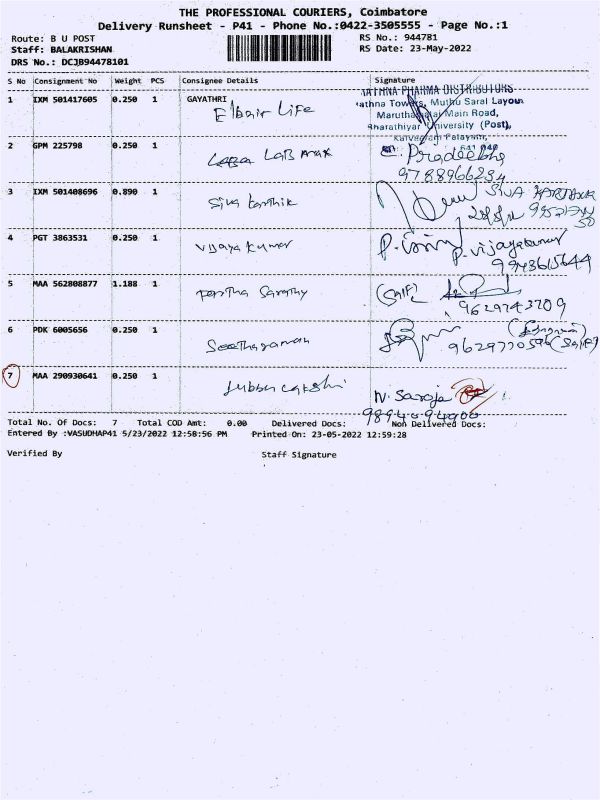 THE PROFESSIONAL COURIERS, Coimbatore
Delivery Runsheet - P41 - Phone No.:0422-3505555 - Page No.:1
Route: B U POST RS No.: 944781
Staff: BALAKRISHAN RS Date: 23-May-2022
DRS No.: DCJB94478101
S No Consignment No Weight PCS Consignee Details Signature
1 IXM 501417605 0.250 1 GAYATHRI
Life
PHARMA DISTRIBUTORS
Muthu Saral Layout
Main Road,
University (Post),
641 046
2 GPM 225798 0.250 1 Lab
Pradeebha
9788966234
3 IXM 501408696 0.890 1 Siva Karthik
SIVA
4 PGT 3863531 0.250 1 Vijayakumar
P. Vijayakumar
9943615644
5 MAA 562808877 1.188 1 Sarathy
9629743709
6 PDK 6005656 0.250 1 Seetharaman
7 MAA 290930641 0.250 1
N. Saroja
9894094900
Total No. Of Docs: 7 Total COD Amt: 0.00 Delivered Docs: Non Delivered Docs:
Entered By :VASUDHAP41 5/23/2022 12:58:56 PM Printed On: 23-05-2022 12:59:28
Verified By Staff Signature